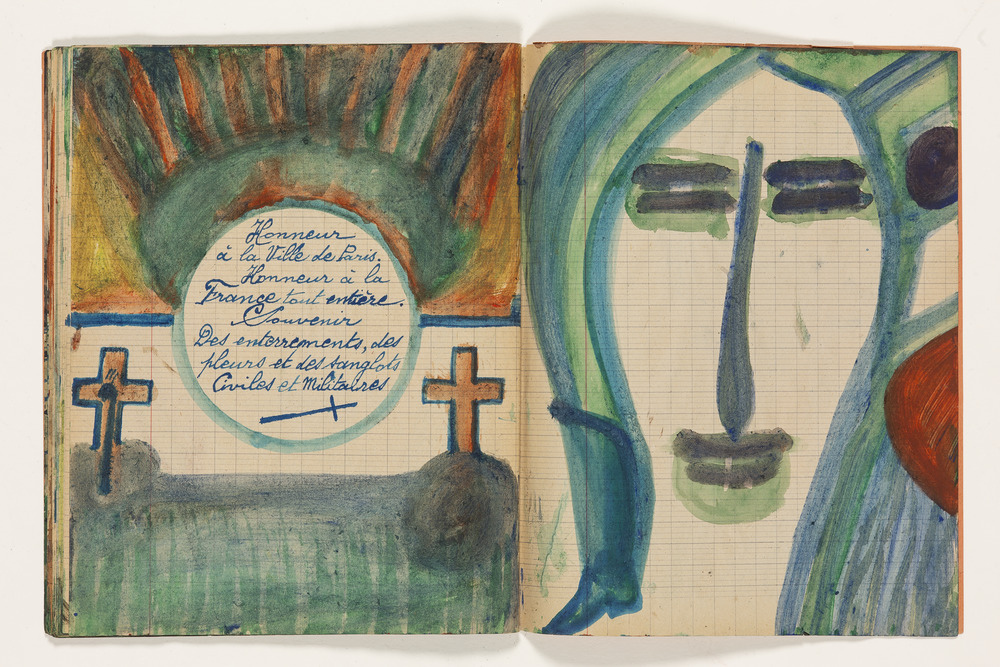 Honneur
à la Ville de Paris.
Honneur à la
France tout entière.
Souvenir
Des enterrements, des
pleurs et des sanglots
Civiles et Militaires